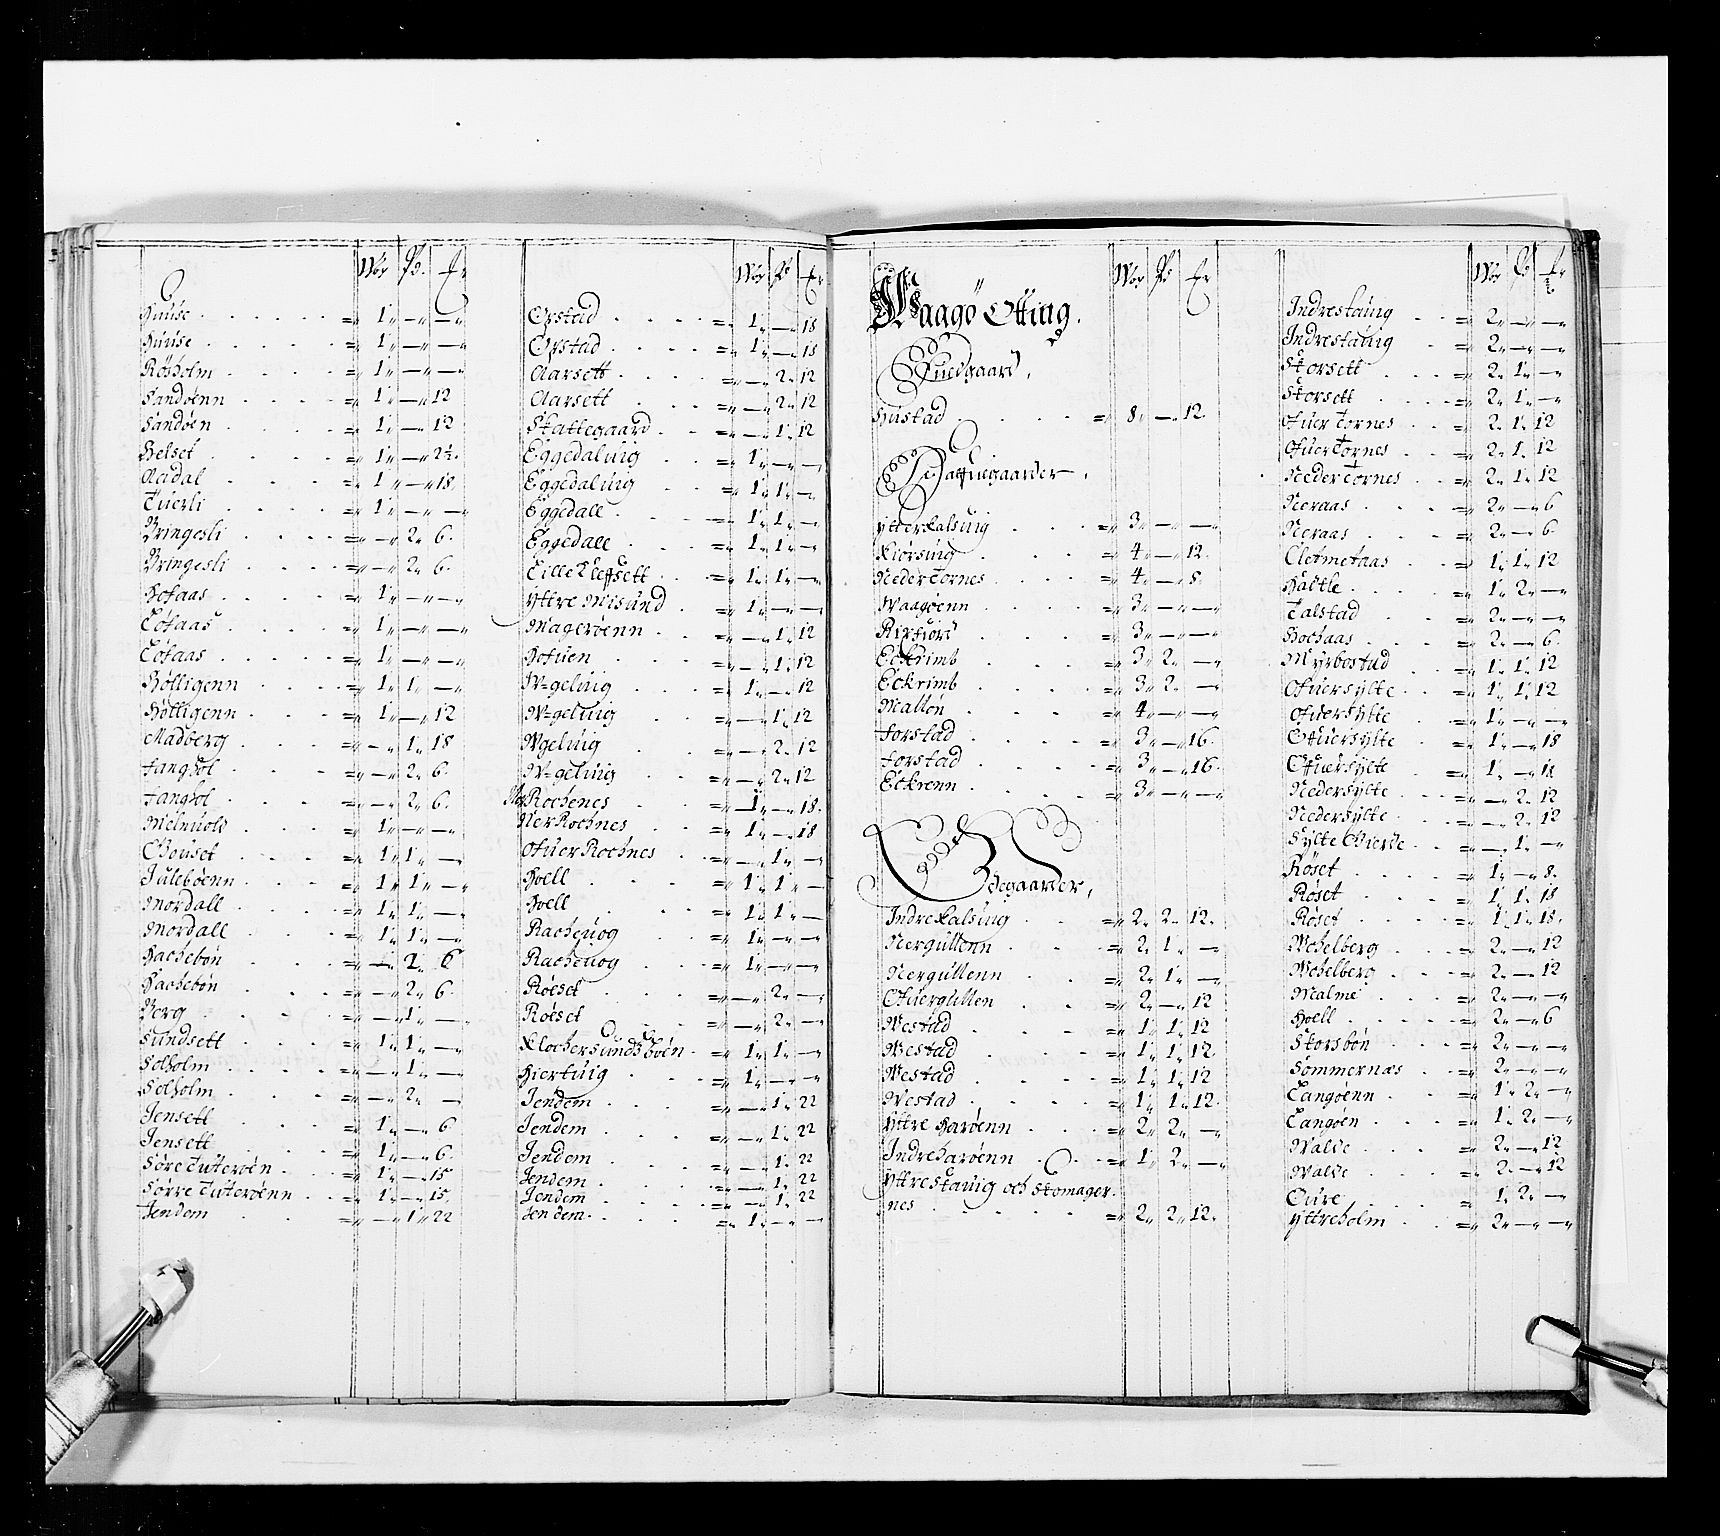 Wor Pd. Er
Huuse = 1 „ — „ — „
Huuse = 1 „ — „ — „
Rösholm = 1 „ — „ — „
Sandöenn = 1 „ — „ 12
Sandöen = 1 „ — „ 12
Helset = 1 „ — „ 2½.
Aadal = 1 „ — „ 18
Tuerli = 1 „ — „ — „
Bringesli = „ — „ 2 „ 6.
Bringesli = „ — „ 2 „ 6.
Hofaas = 1 „ — „ — „
Löfaas = 1 „ — „ — „
Löfaas = 1 „ — „ — „
Hölligenn = 1 „ 1 „ — „
Hölligenn = 1 „ — „ 12
Madberg = „ — „ 1 „ 18
Fanghol = „ — „ 2 „ 6.
Fanghol = „ — „ 2 „ 6.
Melnuold = 1 „ — „ — „
Chouset = 1 „ 1 „ — „
Julebøenn = 1 „ 1 „ — „
Mordall = 1 „ 1 „ — „
Mordall = 1 „ 1 „ — „
Hachebön = „ — „ 2 „ 6
Hachebön = „ — „ 2 „ 6.
Berg = „ — „ 1 „ — „
Sundsett = 1 „ 1 „ — „
Solholm = „ — „ 1 „ — „
Solholm = „ — „ 2 „ —
Jensett = 1 „ — „ 6
Jensett = 1 „ — „ 6.
Söre Tuteröen = 1 „ — „ 15
Sörre Tuteröenn = 1 „ — „ 15
Jendem = „ — „ 1 „ 22
Wor Pd Er
Orstad = 1 „ — „ 18
Orstad = 1 „ — „ 18
Aarsett = „ — „ 2 „ 12
Aarsett = „ — „ 2 „ 12
Skattegaard = „ — „ 1 „ 12
Eggedaluig = 1 „ — „ — „
Eggedaluig = 1 „ 1 „ — „
Eggedall = 1 „ 1 „ — „
Eggedall = 1 „ 1 „ — „
Lille Cleffsett = 1 „ 1 „ — „
Yttre Misund = 1 „ — „ — „
Magerøenn = „ — „ 1 „ 12
Hofuen = „ — „ 1 „ 12
W=geluig = 1 „ — „ 12
W=geluig = „ — „ 1 „ 12
Wgeluig = „ — „ 2 „ 12
W=geluig = „ — „ 2 „ 12
Ner Rochenes = 1 „ — „ 18.
Ner Rochnes = 1 „ — „ 18
Ofuer Rochnes = „ — „ 1 „ — „
Hoell = 1 „ 1 „ —
Hoell = 1 „ 1 „ —
Racheuog = 1 „ — „ — „
Racheuog = 1 „ — „ — „
Röeset = „ — „ 2 „ — „
Röeset = „ — „ 2 „ — „
Klochersunds böen = 1 „ 1 „ — „
Hiertuig = 1 „ — „ — „
Jendem = „ — „ 1 „ 22
Jendem = „ — „ 1 „ 22
Jendem = „ — „ 1 „ 22
Jendem = „ — „ 1 „ 22
Jendem = „ — „ 1 „ 22
Jendem = 1 „ — „ —
Wor Pd Er
Waagö Otting.
Fuldgaard.
Hustad = 8 „ — „ 12.
Halfuegaarder.
Ytterkalsuig = 3 „ — „ — „
Kiorsuig = 4 „ — „ 12.
Neder Tornes = 4 „ — „ 8.
Waagöenn = 3 „ — „ — „
Rixfiord = 3 „ — „ — „
Eckrimb = 3 „ 2 „ — „
Eckrimb = 3 „ 2 „ — „
Mallön = 4 „ — „ — „
Forstad = 3 „ — „ 16.
Forstad = 3 „ — „ 16.
Eckrenn = 3 „ — „ — „
Ödegaarder,
Indrekalsuig = 2 „ 2 „ 12.
Nergullenn = 2 „ 1 „ — „
Nergullenn = 2 „ 1 „ — „
Ofuergullen = 2 „ — „ 12
Westad = 1 „ 1 „ 12
Westad = 1 „ 1 „ 12.
Westad = 1 „ 1 „ 12
Westad = 1 „ 1 „ 12.
Yttre Haröenn = 2 „ 2 „ — „
Indreharöenn = 1 „ 2 „ — „
Yttrestauig och Stomager
nes = 2 „ 2 „ 12.
Wor Pd Er
Indrestauig = 2 „ — „ — „
Indrestauig = 2 „ — „ — „
Storsett = 2 „ 1 „ — „
Storsett = 2 „ 1 „ — „
Ofuer Tornes = 2 „ 1 „ 12
Ofuer Tornes = 2 „ 1 „ 12
Neder Tornes = 2 „ 1 „ 12
Neraas = 2 „ — „ 6
Neraas = 2 „ — „ 6.
Cletmetaas = 1 „ 1 „ 12
Hadtle = 1 „ 2 „ — „
Talstad = 2 „ — „ — „
Hochaas = 2 „ — „ 6.
Myrbostad = 1 „ 1 „ 12
Ofuersylte = 1 „ 1 „ 12
Ofuersylte = 1 „ — „ — „
Ofuersylte = 1 „ — „ 18
Ofuersylte = 1 „ — „ 18
Nedersylte = „ — „ 2 „ 12
Nedersylte = „ — „ 2 „ 12
Sylte Gierde = „ — „ 1 „ — „
Röset = 1 „ — „ 8.
Röset = 1 „ 1 „ 18
Röset = 1 „ 1 „ 18.
Wehelberg = 2 „ — „ 12
Wehelberg = 2 „ — „ 12
Malme = 2 „ — „ — „
Hoell = 2 „ — „ 6
Storsbön = 2 „ — „ — „
Sömmernæs = 2 „ — „ — „
Langöenn = 1 „ 2 „ — „
Langöen = 1 „ 2 „ — „
Walde = 2 „ — „ 12
Walde = 2 „ — „ 12
Oure = 1 „ 2 „ — „
Yttreholm = 2 „ — „ — „